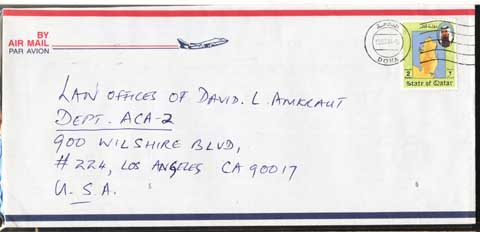 BY
AIR MAIL
PAR AVION
DOHA
2
State of Qatar
LAW OFFICES OF DAVID. L. AMKRAUT
DEPT. ACA-2
900 WILSHIRE BLVD,
# 224, LOS ANGELES CA 90017
U.S.A.